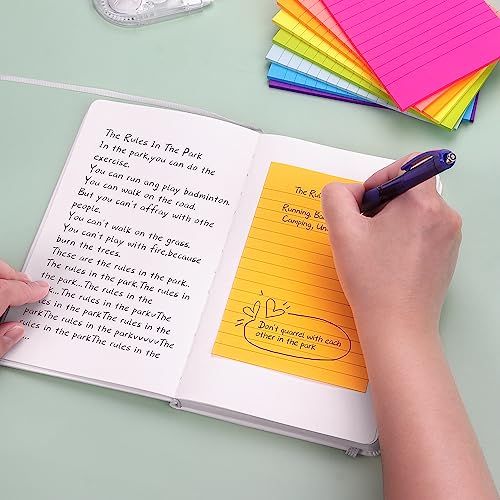 The Rules In The Park
In the park,you can do the
exercise.
You can run ang play badminton.
You can walk on the road.
But you can't affray with othe
people.
You can't walk on the grass.
You can't play with fire,because
burn the trees.
These are the rules in the park..
The rules in the park.The rules in
the park...The rules in the
park...The rules in the parkvThe
rules in the parkThe rules in the
parkThe rules in the parkvvvvvThe
rules in the parkThe rules in the
...
The Ru
Running, Ba
Camping, Un
Don't quarrel with each
other in the park